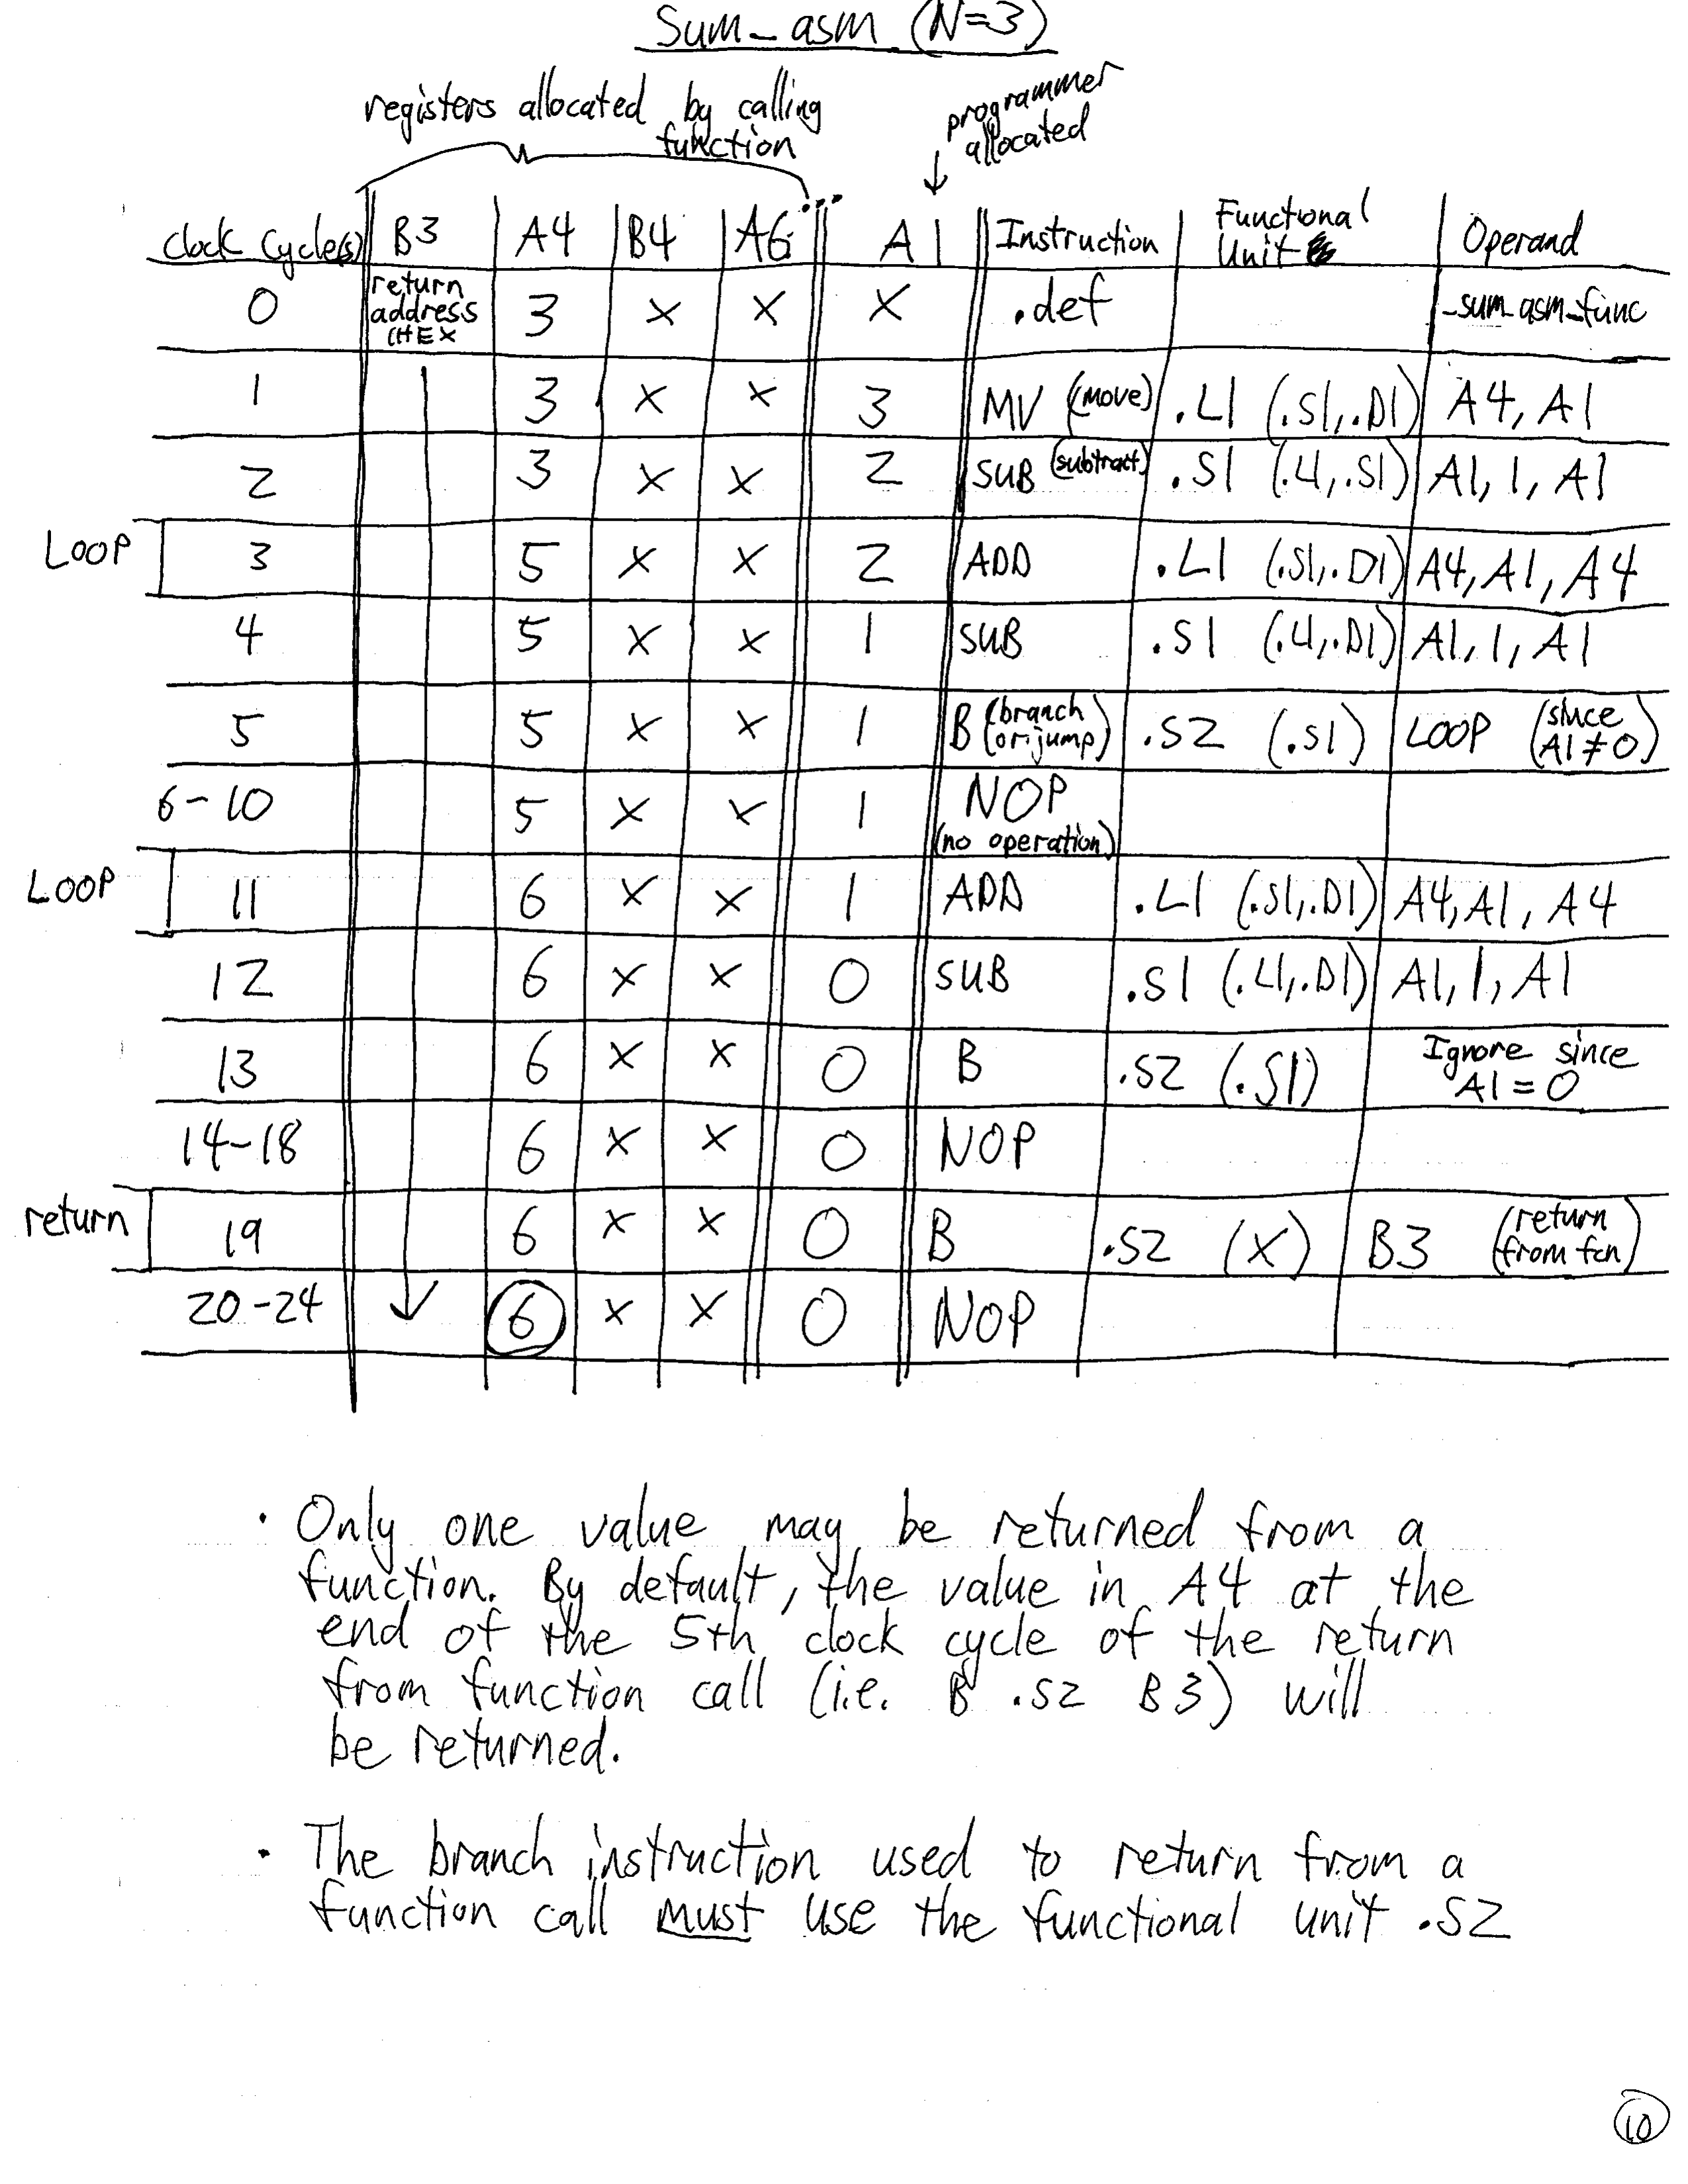 Sum_asm (N=3)
registers allocated by calling function
programmer allocated
Clock Cycle(s) B3 A4 B4 A6 ... A1 Instruction Functional Unit Operand
0 return address (HEX 3 x x x .def _sum_asm_func
1 3 x x 3 MV (move) .L1 (.S1,.D1) A4, A1
2 3 x x 2 SUB (subtract) .S1 (.L1,.S1) A1, 1, A1
LOOP 3 5 x x 2 ADD .L1 (.S1,.D1) A4, A1, A4
4 5 x x 1 SUB .S1 (.L1,.D1) A1, 1, A1
5 5 x x 1 B (branch or jump) .S2 (.S1) LOOP (since A1≠0)
6-10 5 x x 1 NOP (no operation)
LOOP 11 6 x x 1 ADD .L1 (.S1,.D1) A4, A1, A4
12 6 x x 0 SUB .S1 (.L1,.D1) A1, 1, A1
13 6 x x 0 B .S2 (.S1) Ignore since A1=0
14-18 6 x x 0 NOP
return 19 6 x x 0 B .S2 (x) B3 (return from fcn)
20-24 6 x x 0 NOP
· Only one value may be returned from a
function. By default, the value in A4 at the
end of the 5th clock cycle of the return
from function call (i.e. B .S2 B3) will
be returned.
· The branch instruction used to return from a
function call must use the functional unit .S2
10